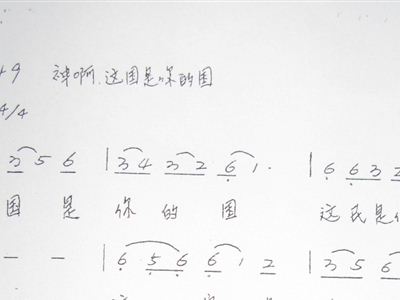 49 神啊,这国是你的国
4/4
3 5 6 | 3 4 3 2 6 1· | 6 6 3 2
国 是 你 的 国 这民是
— — | 6 5 6 6 1 2 | 3 5 6